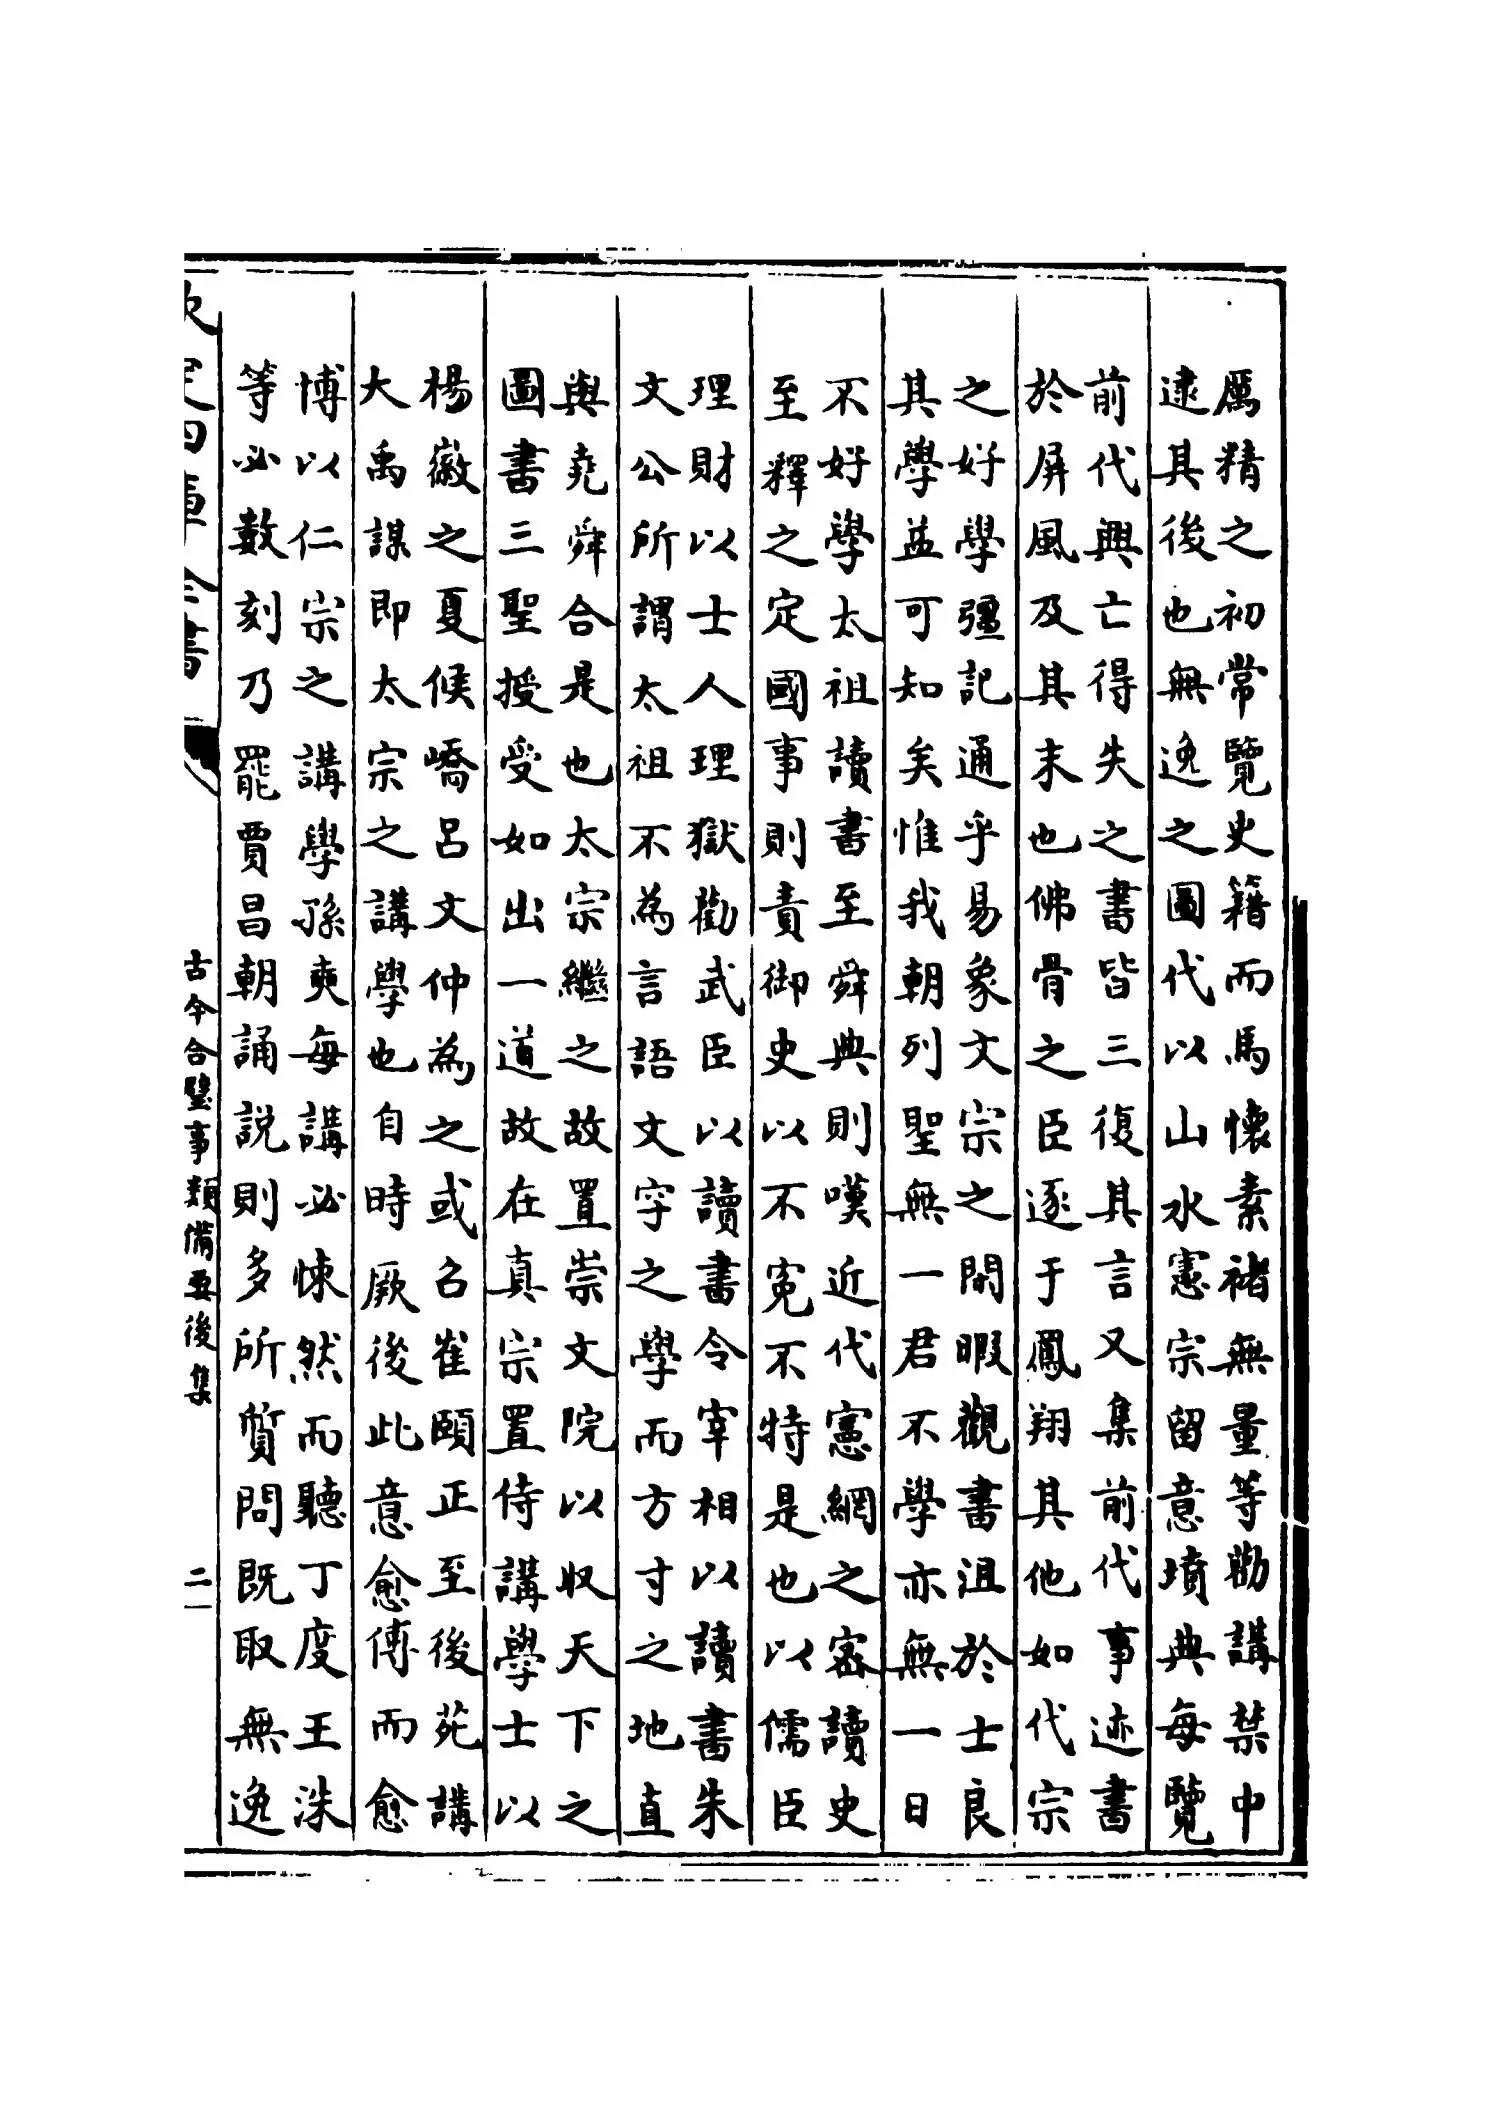 厲精之初常覽史籍而馬懷素褚無量等勸講禁中
逮其後也無逸之圖代以山水憲宗留意墳典每覽
前代興亡得失之書皆三復其言又集前代事迹書
於屏風及其末也佛骨之臣逐于鳳翔其他如代宗
之好學彊記通乎易象文宗之閒暇觀書沮於士良
其學益可知矣惟我朝列聖無一君不學亦無一日
不好學太祖讀書至舜典則嘆近代憲網之密讀史
至釋之定國事則責御史以不寃不特是也以儒臣
理財以士人理獄勸武臣以讀書令宰相以讀書朱
文公所謂太祖不為言語文字之學而方寸之地直
與堯舜合是也太宗繼之故置崇文院以収天下之
圖書三聖授受如出一道故在真宗置侍講學士以
楊徽之夏候嶠呂文仲為之或名崔頤正至後苑講
大禹謀即太宗之講學也自時厥後此意愈傳而愈
博以仁宗之講學孫奭每講必悚然而聽丁度王洙
等必數刻乃罷賈昌朝誦說則多所質問既取無逸
欽定四庫全書
古今合璧事類備要後集
二